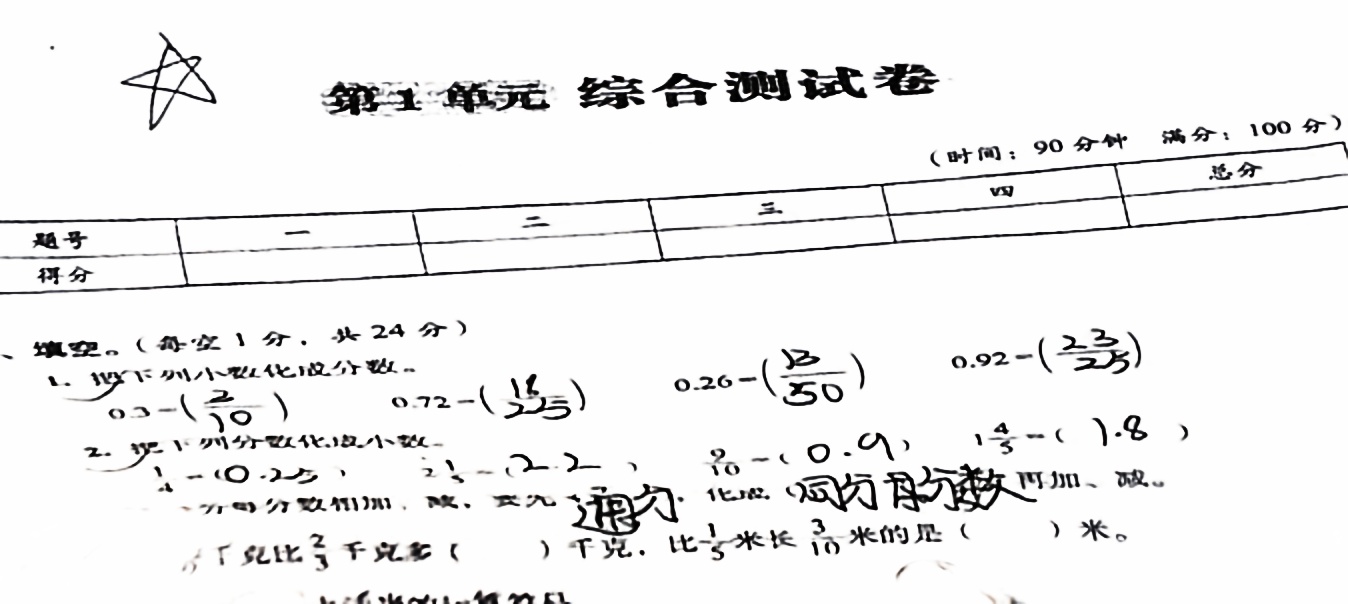 第1单元 综合测试卷
(时间:90分钟 满分:100分)
题号 一 二 三 四 总分
得分
、填空。(每空1分,共24分)
1. 把下列小数化成分数。
0.3=(2/10) 0.72=(18/225) 0.26=(13/50) 0.92=(23/25)
2. 把下列分数化成小数。
1/4=(0.25) 2 1/5=(2.2) 9/10=(0.9) 1 4/5=(1.8)
分母分数相加、减,要先 通分,化成(同分母分数 再加、减。
千克比2/3千克多( )千克,比1/5米长3/10米的是( )米。